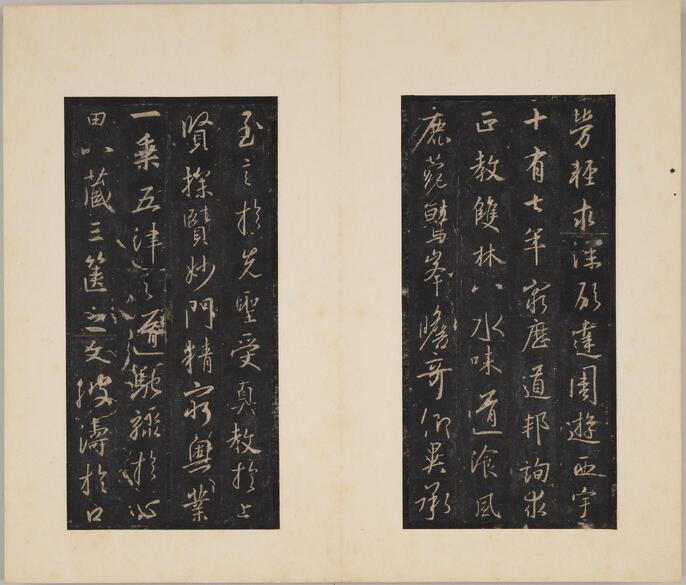 勞輕求深願達周遊西宇
十有七年窮歷道邦詢求
正教雙林八水味道湌風
鹿菀鷲峯瞻奇仰異承
至言於先聖受真教於上
賢探賾妙門精窮奧業
一乘五律之道馳驟於心
田八藏三篋之文波濤於口